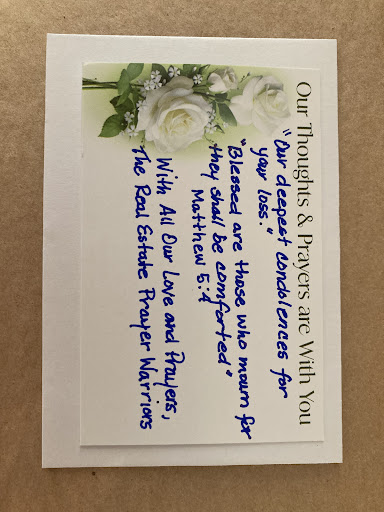 Our Thoughts & Prayers are With You
"Our deepest condolences for
your loss."
"Blessed are those who mourn for
they shall be comforted"
Matthew 5:4
With All Our Love and Prayers,
The Real Estate Prayer Warriors